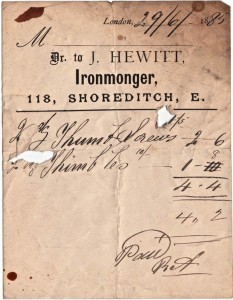 London, 29/6/1885
M
Dr. to J. HEWITT,
Ironmonger,
118, SHOREDITCH, E.
2 Thumb Screws 2 6
2 Thimbles 1 8
4 4
4, 2
Paid